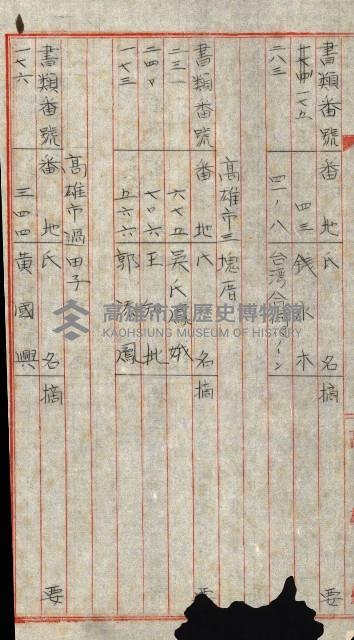 書類番號 番地 氏名 摘要
一七五 四三 錢水木
二八三 四一ノ八
高雄市三塊厝
書類番號 番地 氏名 摘要
二三一 六七五 吳氏
二四〇 七〇六 王
一七三 五六六 郭添鳳
高雄市過田子
書類番號 番地 氏名 摘要
一七六 三四四 黃國興
高雄市立歷史博物館
KAOHSIUNG MUSEUM OF HISTORY